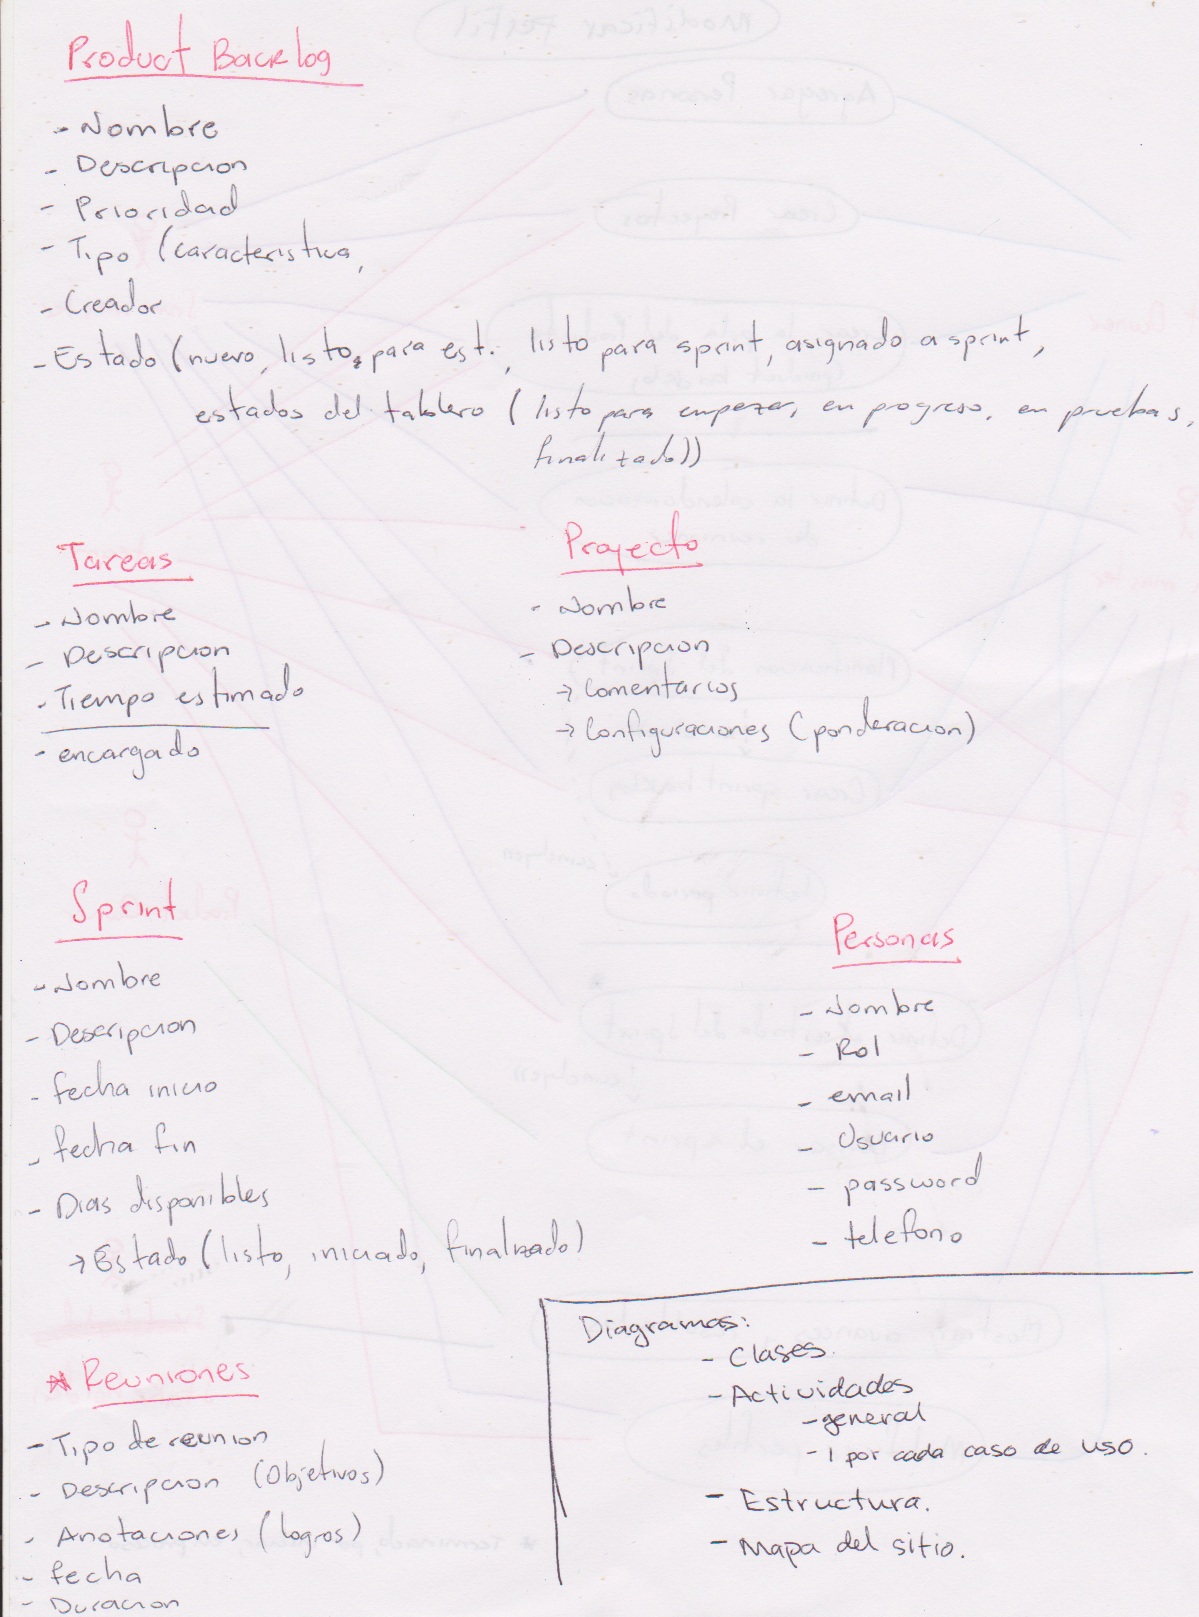 Product Backlog
- Nombre
- Descripcion
- Prioridad
- Tipo (caracteristica,
- Creador
- Estado (nuevo, listo para est., listo para sprint, asignado a sprint,
estados del tablero (listo para empezar, en progreso, en pruebas,
finalizado))
Tareas
- Nombre
- Descripcion
- Tiempo estimado
- encargado
Proyecto
- Nombre
- Descripcion
→ Comentarios
→ Configuraciones (ponderacion)
Sprint
- Nombre
- Descripcion
- fecha inicio
- fecha fin
- Dias disponibles
→ Estado (listo, iniciado, finalizado)
Personas
- Nombre
- Rol
- email
- Usuario
- password
- telefono
* Reuniones
- Tipo de reunion
- Descripcion (Objetivos)
- Anotaciones (logros)
- fecha
- Duracion
Diagramas:
- Clases.
- Actividades
- general
- 1 por cada caso de uso.
- Estructura.
- Mapa del sitio.